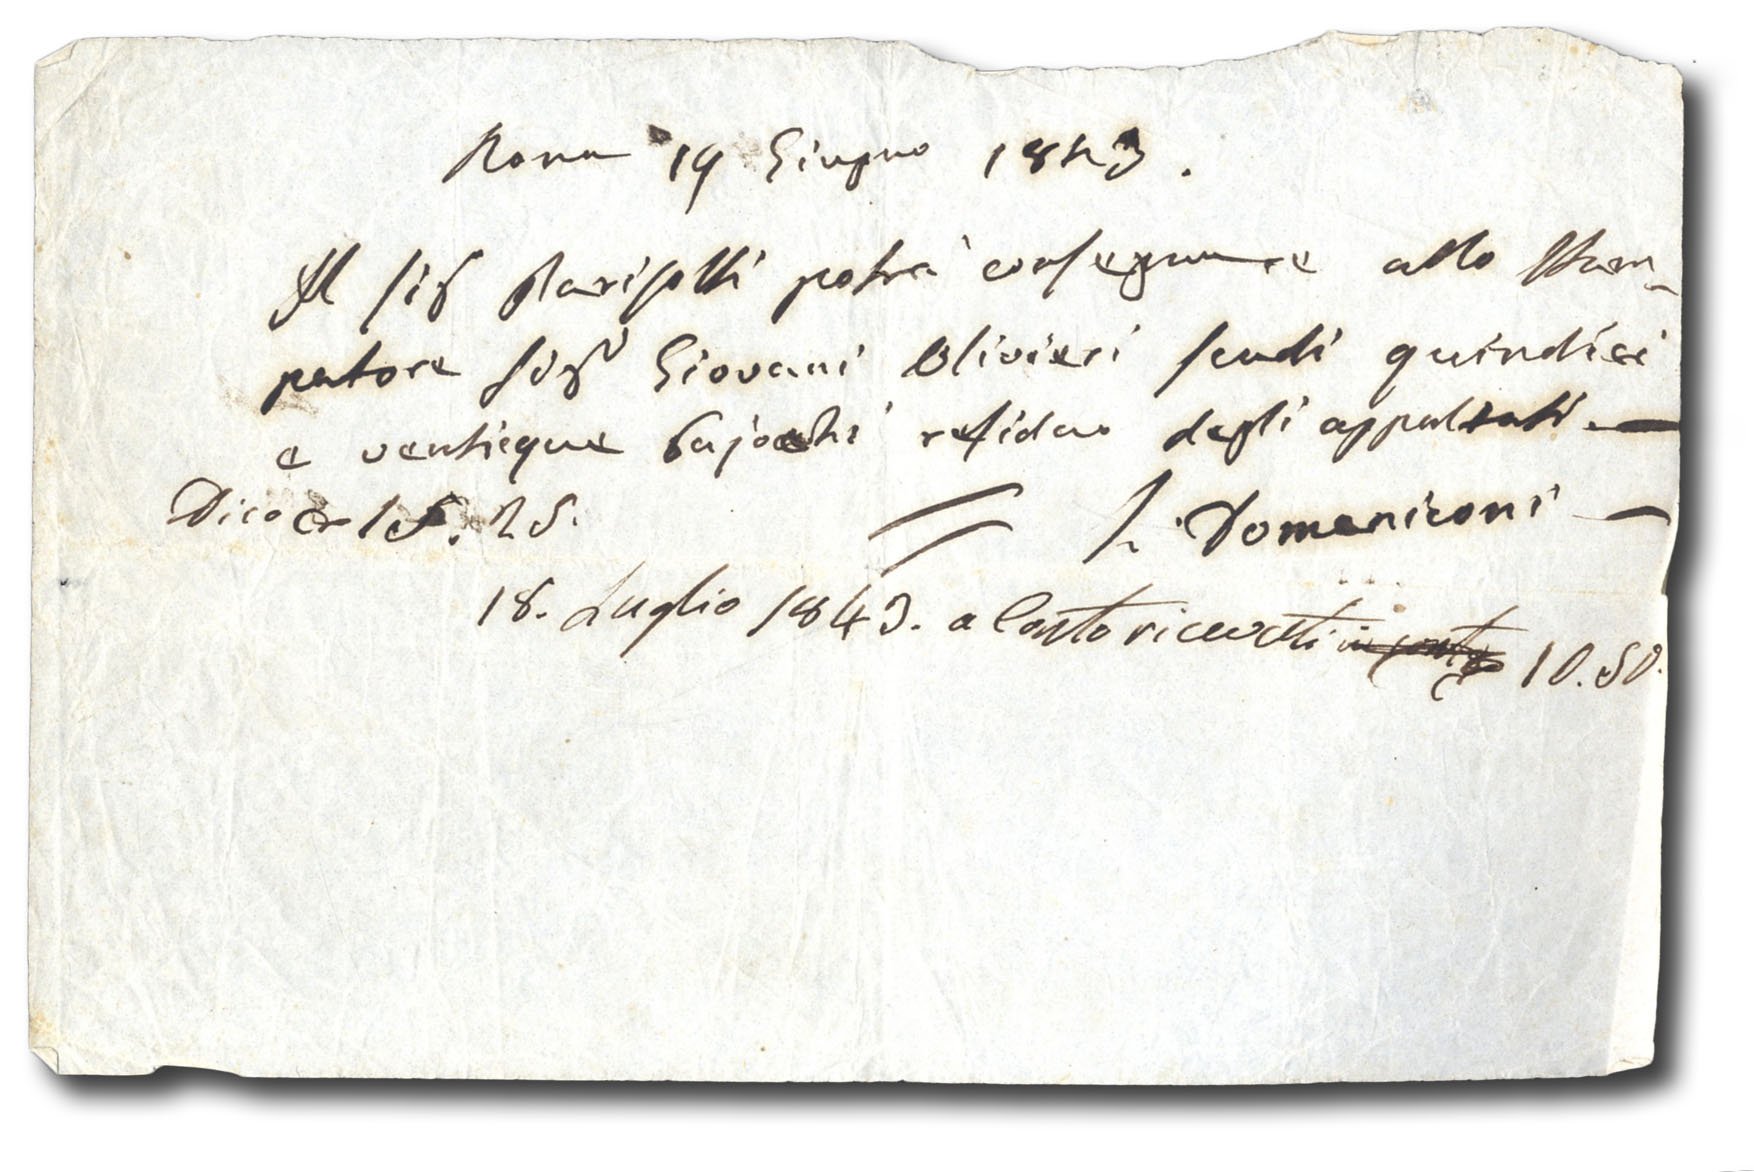 Roma 19 Giugno 1843.
Il Sig potrà consegnare allo Stam-
patore Sigr Giovani Olivieri scudi quindici
e venticque bajochi residuo degli appaltati —
Dico 15. 25. L. Domeniconi —
18. Luglio 1843. a Conto ricevuti in conto 10.50.